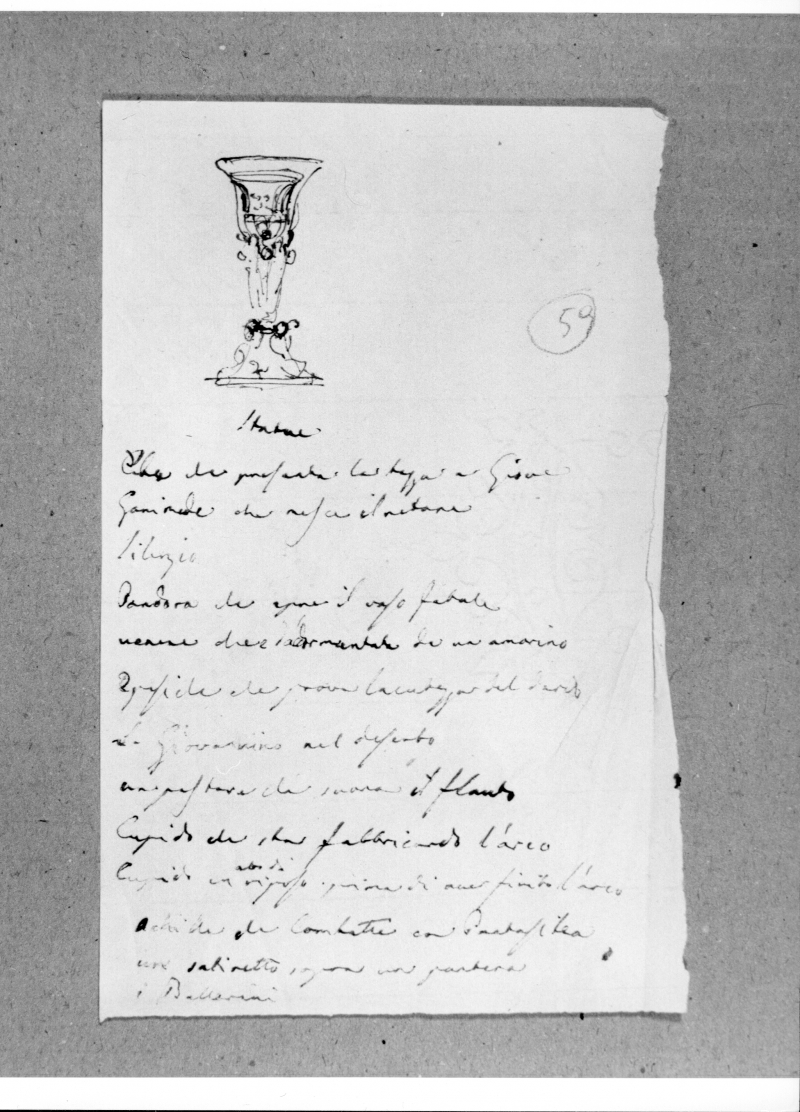 59
Statue
Ebe che presenta la tazza a Giove
Ganimede che mesce il netare
Silenzio
Pandora che apre il vaso fatale
venere che è tormentata da un amorino
che prova l'acutezza del dardo
S. Giovannino nel deserto
un pastore che suona il flauto
Cupido che sta fabbricando l'arco
Cupido in atto di riposo prima di aver finito l'arco
Achille che combatte con Pantasilea
un satiretto sopra una pantera
i Ballerini